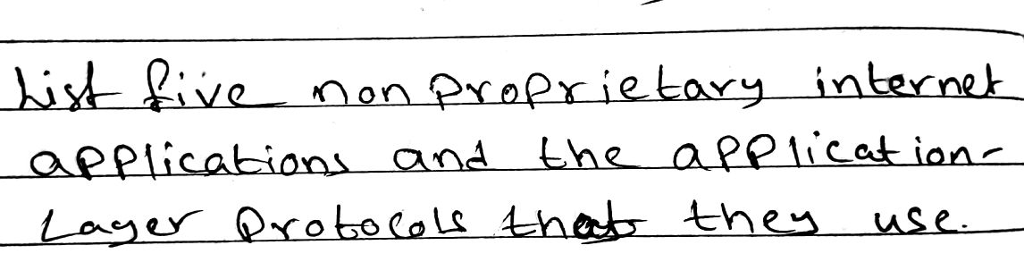 List five non proprietary internet
applications and the application-
Layer Protocols that they use.